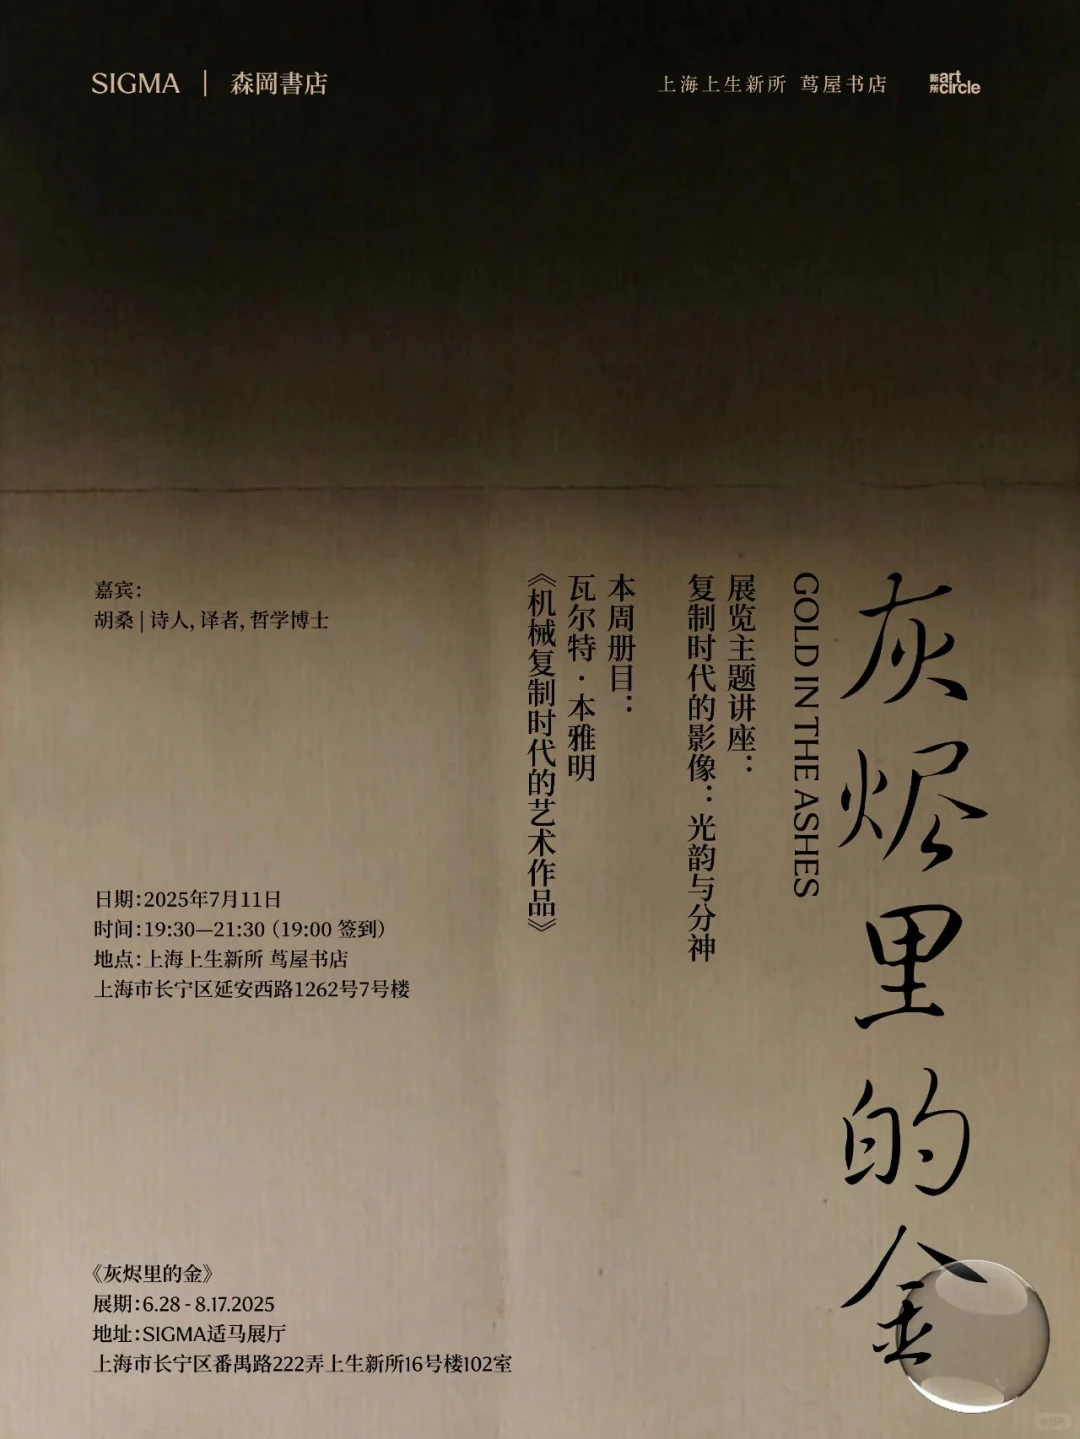 SIGMA | 森岡書店
上海上生新所 茑屋书店
新所 art circle
灰烬里的金
GOLD IN THE ASHES
展览主题讲座：
复制时代的影像：光韵与分神
本周册目：
瓦尔特·本雅明
《机械复制时代的艺术作品》
嘉宾：
胡桑 | 诗人, 译者, 哲学博士
日期：2025年7月11日
时间：19:30—21:30（19:00 签到）
地点：上海上生新所 茑屋书店
上海市长宁区延安西路1262号7号楼
《灰烬里的金》
展期：6.28 - 8.17.2025
地址：SIGMA适马展厅
上海市长宁区番禺路222弄上生新所16号楼102室